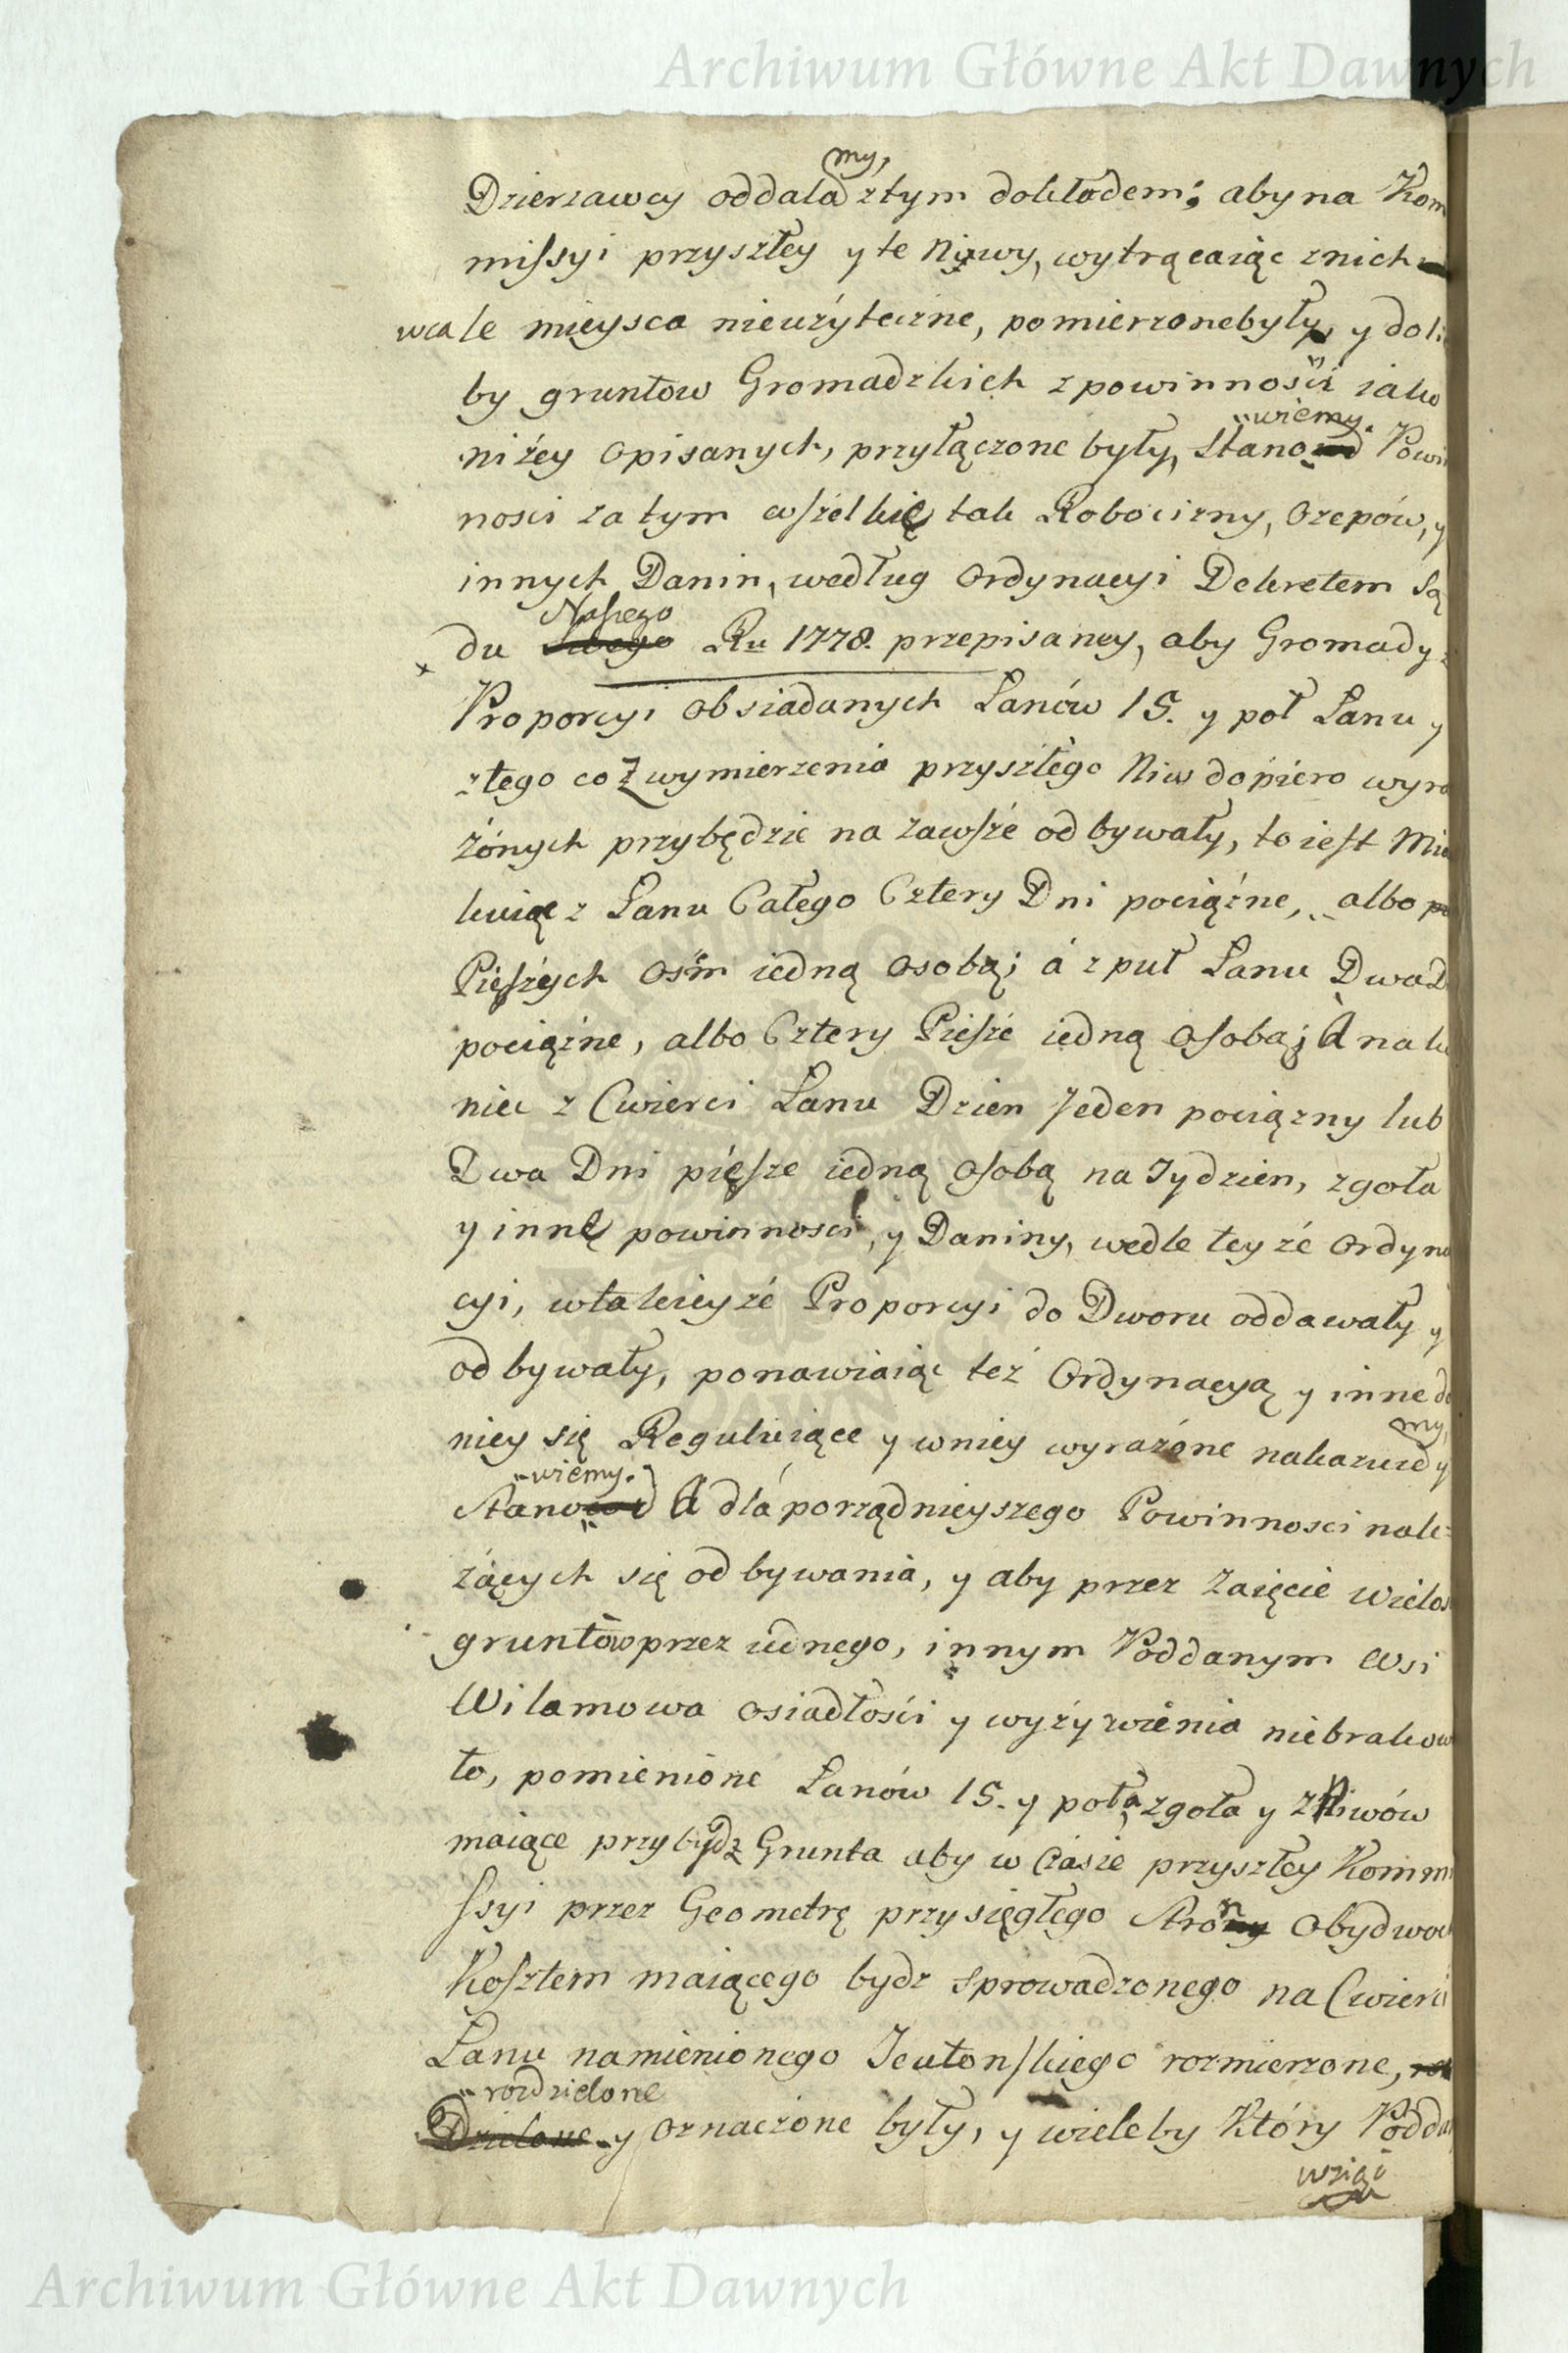 Archiwum Główne Akt Dawnych
my,
Dzierzawcy oddala ztym dokładem; aby na Kom
missyi przyszłey y te Niwy, wytrącaiąc znich
wcale mieysca nieużyteczne, pomierzone były, y doli
by gruntow Gromadzkich z powinnosci iako
wiemy.
niżey opisanych, przyłączone były, Stano Powin
nosci za tym wszelkię tak Robocizny, Czepów, y
innych Danin, według Ordynacyi Dekretem Są
Naszego
du Swego Ru 1778. przepisaney, aby Gromady z
Proporcyi obsiadanych Łanów 15. y poł Łanu y
ztego co Z wymierzenia przyszłego Niw dopiero wyra
żónych przybędzie na zawsze odbywały, to iest Mie
kuiąc z Łanu Całego Cztery Dni pociążne, albo
Pięszych ośm iedną osobą; á z puł Łanu Dwa D
pociążne, albo Cztery Piesze iedną osobą; A na ko
niec z Cwierci Łanu Dzien Jeden pociązny lub
Dwa Dni pięsze iedną osobą na Tydzien, zgoła
y innę powinnosci, y Daniny, wedle teyże Ordyna
cyi, wtakieyże Proporcyi do Dworu oddawały y
odbywały, ponawiaiąc też Ordynacyą y inne do
my,
niey się Reguluiące y wniey wyrażóne nakazuie y
wiemy.
Stanowi A dla porządnieyszego Powinnosci nale=
żących się odbywania, y aby przez Zaięcie wielos
gruntów przez iednego, innym Poddanym Wsi
Wilamowa osiadłości y wyżywienia niebrakow
ło, pomienióne Łanów 15. y poła, zgoła y z Niwów
maiące przybydz Grunta aby w Czasie przyszłey Kommi
ssyi przez Geometrę przysięgłego Stron Obydwoch
Kosztem maiącego bydz sprowadzonego na Cwierci
Łanu namienionego Teutonskiego rozmierzone,
rozdzielone
Dzielone y oznaczone były, y wieleby Który Podda
wziąć
Archiwum Główne Akt Dawnych